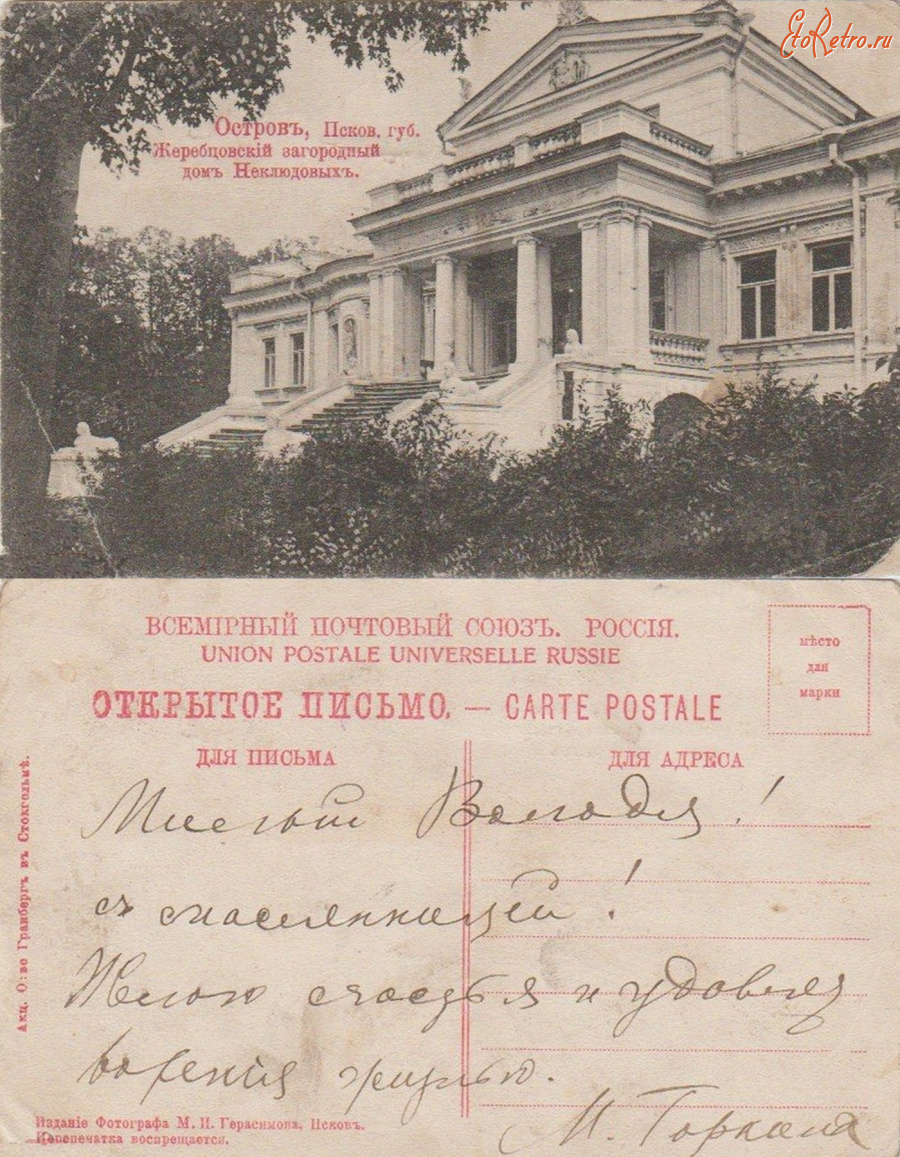 EtoRetro.ru
Островъ, Псков. губ.
Жеребцовскій загородный
домъ Неклюдовыхъ.
ВСЕМІРНЫЙ ПОЧТОВЫЙ СОЮЗЪ. РОССІЯ.
UNION POSTALE UNIVERSELLE RUSSIE
ОТКРЫТОЕ ПИСЬМО. — CARTE POSTALE
мѣсто
для
марки
ДЛЯ ПИСЬМА
ДЛЯ АДРЕСА
Милый Володя!
с масленницей!
Желаю счастья и удовлет
ворения жизнью.
М.
Акц. О-во Гранбергъ въ Стокгольмѣ.
Изданіе Фотографа М. И. Герасимова, Псковъ.
Перепечатка воспрещается.